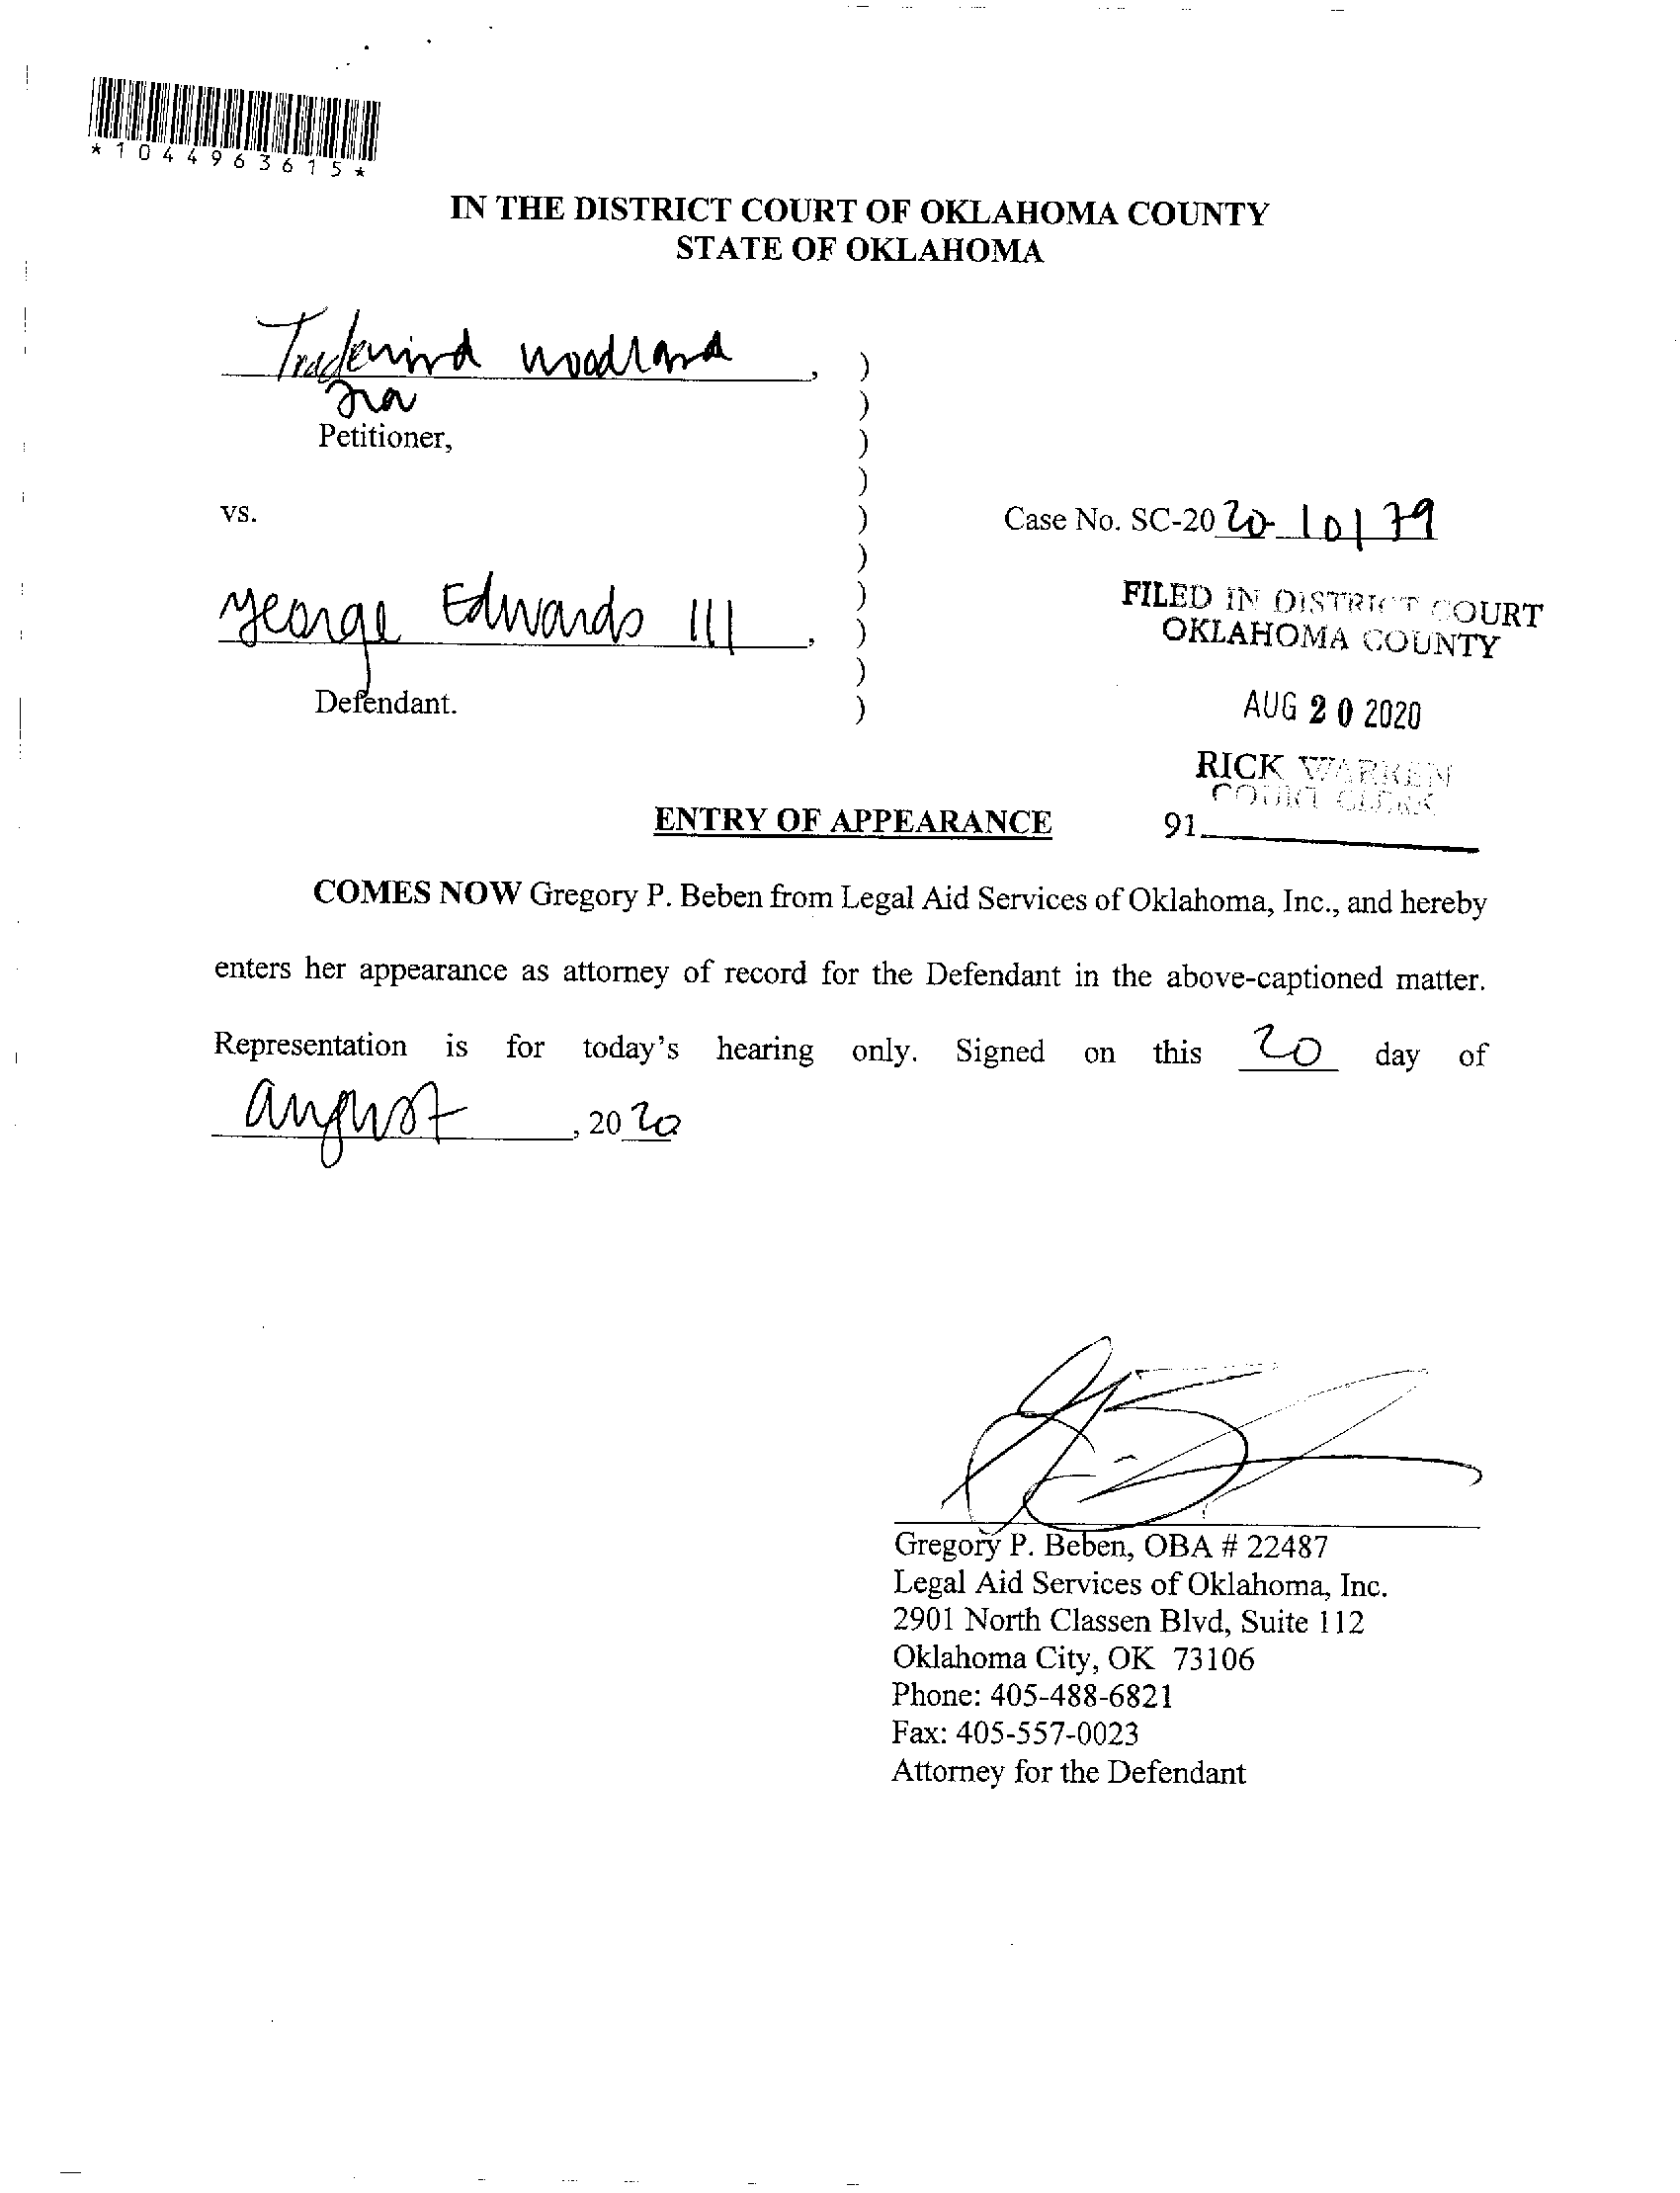 *1044963615*
IN THE DISTRICT COURT OF OKLAHOMA COUNTY
STATE OF OKLAHOMA
Tradewind Woodland
,
)
)
Petitioner,
)
)
vs.
)
Case No. SC-2020-10179
)
George Edwards III,
)
)
)
Defendant.
)
FILED IN DISTRICT COURT
OKLAHOMA COUNTY
AUG 20 2020
RICK WARREN
COURT CLERK
91
ENTRY OF APPEARANCE
COMES NOW Gregory P. Beben from Legal Aid Services of Oklahoma, Inc., and hereby
enters her appearance as attorney of record for the Defendant in the above-captioned matter.
Representation is for today's hearing only. Signed on this 20 day of
August, 2020
Gregory P. Beben, OBA # 22487
Legal Aid Services of Oklahoma, Inc.
2901 North Classen Blvd, Suite 112
Oklahoma City, OK 73106
Phone: 405-488-6821
Fax: 405-557-0023
Attorney for the Defendant